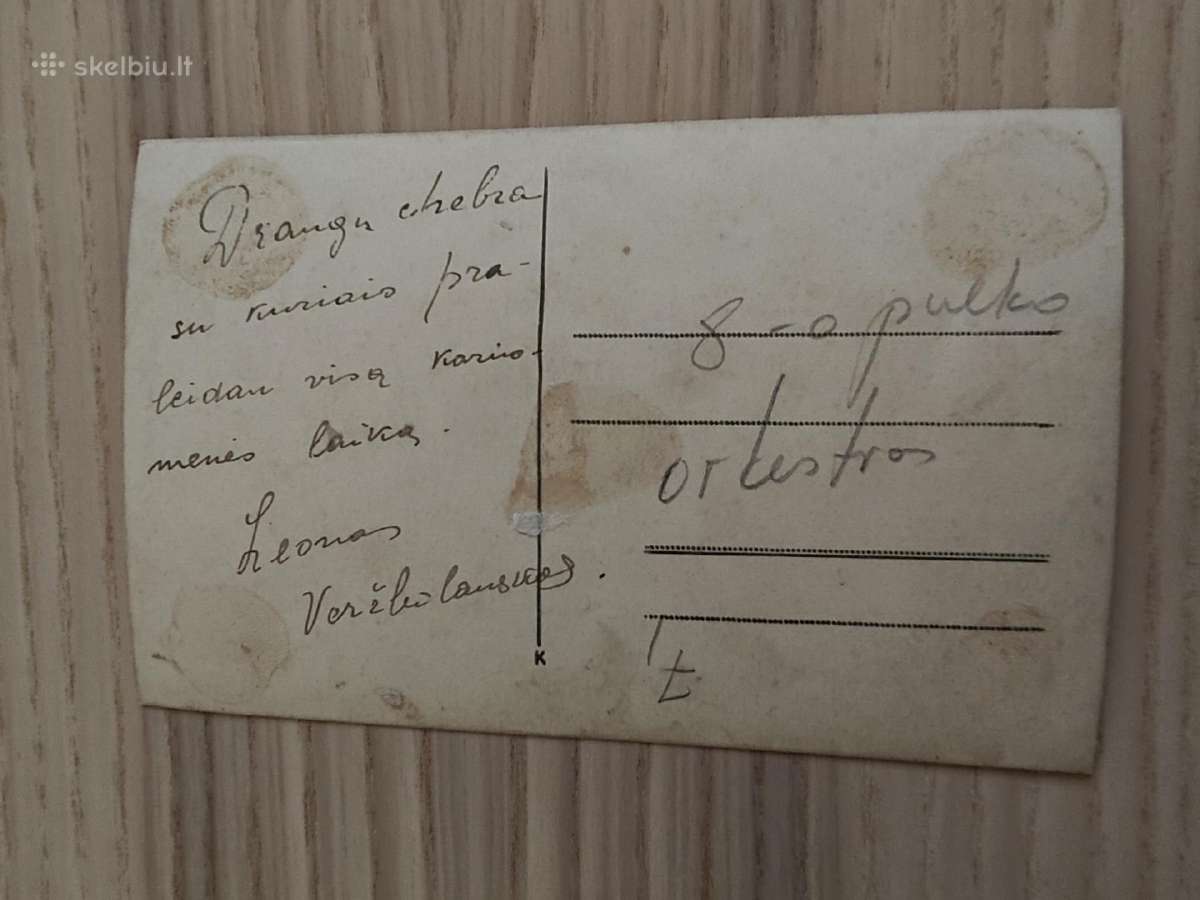 skelbiu.lt
Draugų chebra
su kuriais pra-
leidau visą kariuo-
menės laiką.
Leonas
Veržbolauskas.
8-o pulko
orkestras
K